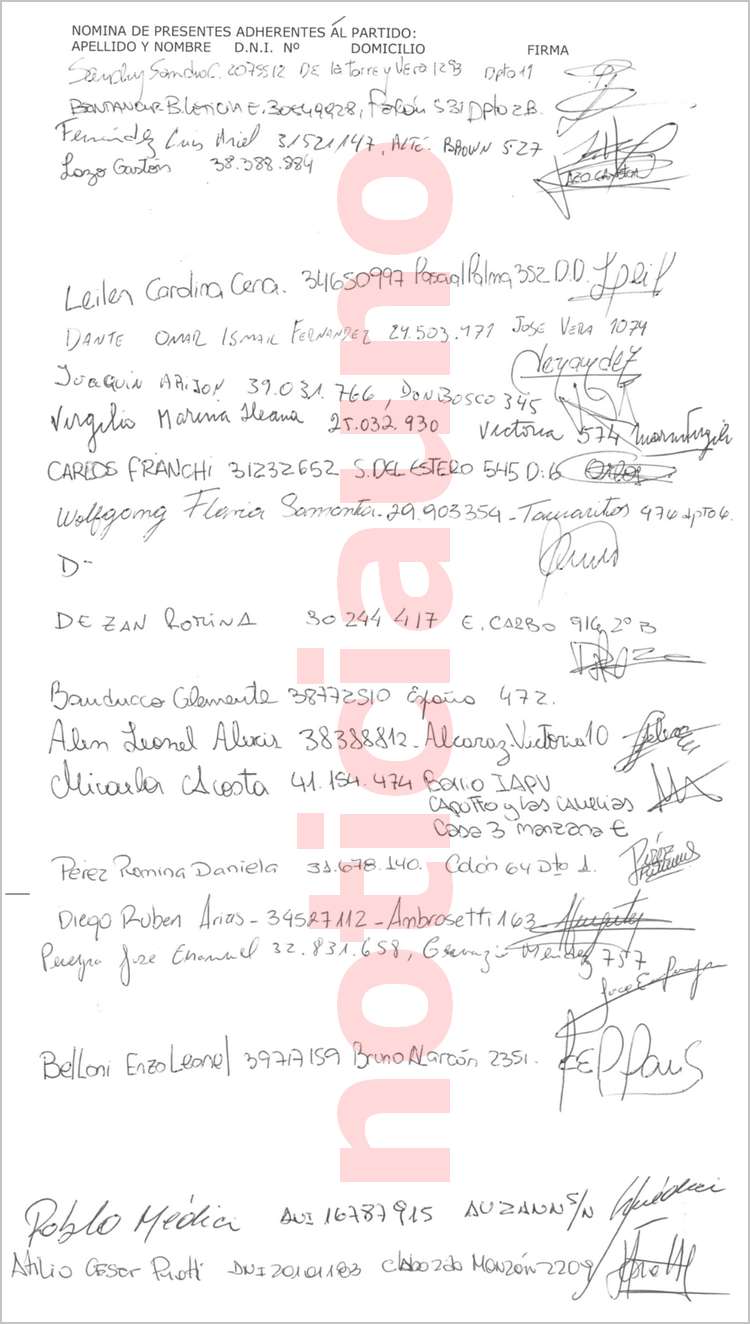 NOMINA DE PRESENTES ADHERENTES AL PARTIDO:
APELLIDO Y NOMBRE D.N.I. Nº DOMICILIO FIRMA
Sandro C. 2079512 DE la Torre y Vera 1293 Dpto 11
B. LETICIA E. 30649928, Falcón 531 Dpto 2B.
Fernández Luis Ariel 31521147, ALTE. BROWN 527
Lazo Gastón 38.388.884
LAZO GASTON
Leilen Carolina Cera. 34650997 Pascual Palma 352 D.D.
DANTE OMAR ISMAIL FERNANDEZ 24.503.171 JOSÉ VERA 1074
Fernandez
JOAQUIN ARIJON 39.031.766, DON BOSCO 345
Virgilio Marina Ileana 25.032.930 Victoria 574
CARLOS FRANCHI 31232652 S. DEL ESTERO 545 D:6
Wolfgang Flavia Samanta - 29.903354 - Tacuaritos 476 dpto 6.
D-
DE ZAN ROMINA 30 244 417 E. CARBO 916 2º B
Banducco Clemente 38772510 España 472.
Alen Leonel Alexis 38388812 - Alcaraz. Victoria 10
Micaela Acosta 41.154.474 Barrio IAPV
CAPUTTO y las CAMELIAS
Casa 3 manzana E
Pérez Romina Daniela 31.678.140. Colón 64 Dto 1.
Diego Ruben Arias - 34527112 - Ambrosetti 163
Pereyra Jose Emanuel 32.831.658, Gervasio Mendez 757
Belloni Enzo Leonel 39717159 Bruno Alarcón 2351.
Pablo Médici DNI 16787915 AUZANN S/N
Atilio Cesar DNI 20101183 Monzón 2209
noticiauno